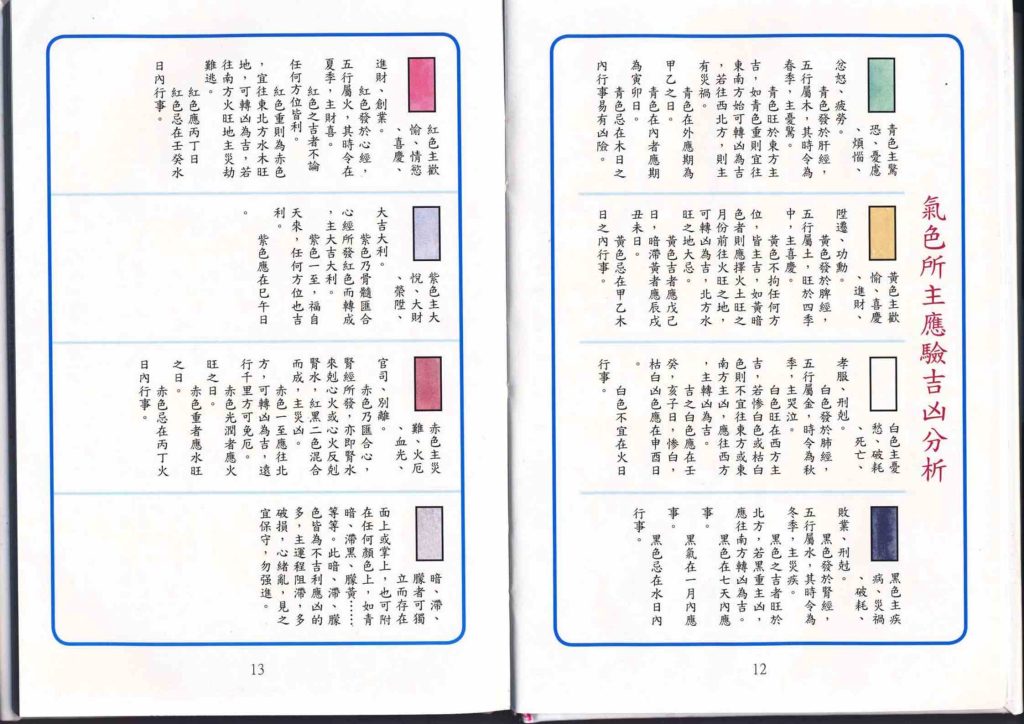 氣色所主應驗吉凶分析
青色主驚
恐、憂慮
、煩惱、
忿怒、疲勞。
青色發於肝經，
五行屬木，其時令為
春季，主憂驚。
青色旺於東方主
吉，如青色重則宜往
東南方始可轉凶為吉
，若往西北方，則主
有災禍。
青色在外應期為
甲乙之日。
青色在內者應期
為寅卯日。
青色忌在木日之
內行事易有凶險。
黃色主歡
愉、喜慶
、進財、
陞遷、功勳。
黃色發於脾經，
五行屬土，旺於四季
中，主喜慶。
黃色不拘任何方
位，皆主吉，如黃暗
色者則應擇火土旺之
月份前往火旺之地，
可轉凶為吉，北方水
旺之地大忌。
黃色吉者應戊己
日，暗滯黃者應辰戌
丑未日。
黃色忌在甲乙木
日之內行事。
白色主憂
愁、破耗
、死亡、
孝服、刑剋。
白色發於肺經，
五行屬金，時令為秋
季，主哭泣。
白色旺在西方主
吉，若慘白色或枯白
色則不宜往東方或東
南方主凶，應往西方
，主轉凶為吉。
吉之白色應在壬
癸，亥子日，慘白，
枯白凶色應在申酉日
。
白色不宜在火日
行事。
黑色主疾
病、災禍
、破耗、
敗業、刑剋。
黑色發於腎經，
五行屬水，其時令為
冬季，主災疾。
黑色之吉者旺於
北方，若黑重主凶，
應往南方轉凶為吉。
黑色在七天內應
事。
黑氣在一月內應
事。
黑色忌在水日內
行事。
12
紅色主歡
愉、情慾
、喜慶、
進財、創業。
紅色發於心經，
五行屬火，其時令在
夏季，主財喜。
紅色之吉者不論
任何方位皆利。
紅色重則為赤色
，宜往東北方水木旺
地，可轉凶為吉，若
往南方火旺地主災劫
難逃。
紅色應丙丁日
紅色忌在壬癸水
日內行事。
紫色主大
悅、大財
、榮陞、
大吉大利。
紫色乃骨髓匯合
心經所發紅色而轉成
，主大吉大利。
紫色一至，福自
天來，任何方位也吉
利。
紫色應在巳午日
。
赤色主災
難、火厄
、血光、
官司、別離。
赤色乃匯合心，
腎經所發，亦即腎水
來剋心火或心火反剋
腎水，紅黑二色混合
而成，主災凶。
赤色一至應往北
方，可轉凶為吉，遠
行千里方可免厄。
赤色光潤者應火
旺之日。
赤色重者應水旺
之日。
赤色忌在丙丁火
日內行事。
暗、滯、
朦者可獨
立而存在
面上或掌上，也可附
在任何顏色上，如青
暗、滯黑、朦黃……
等等。此暗、滯、朦
色皆為不吉利應凶的
多，主運程阻滯，多
破損，心緒亂，見之
宜保守，勿强進。
13